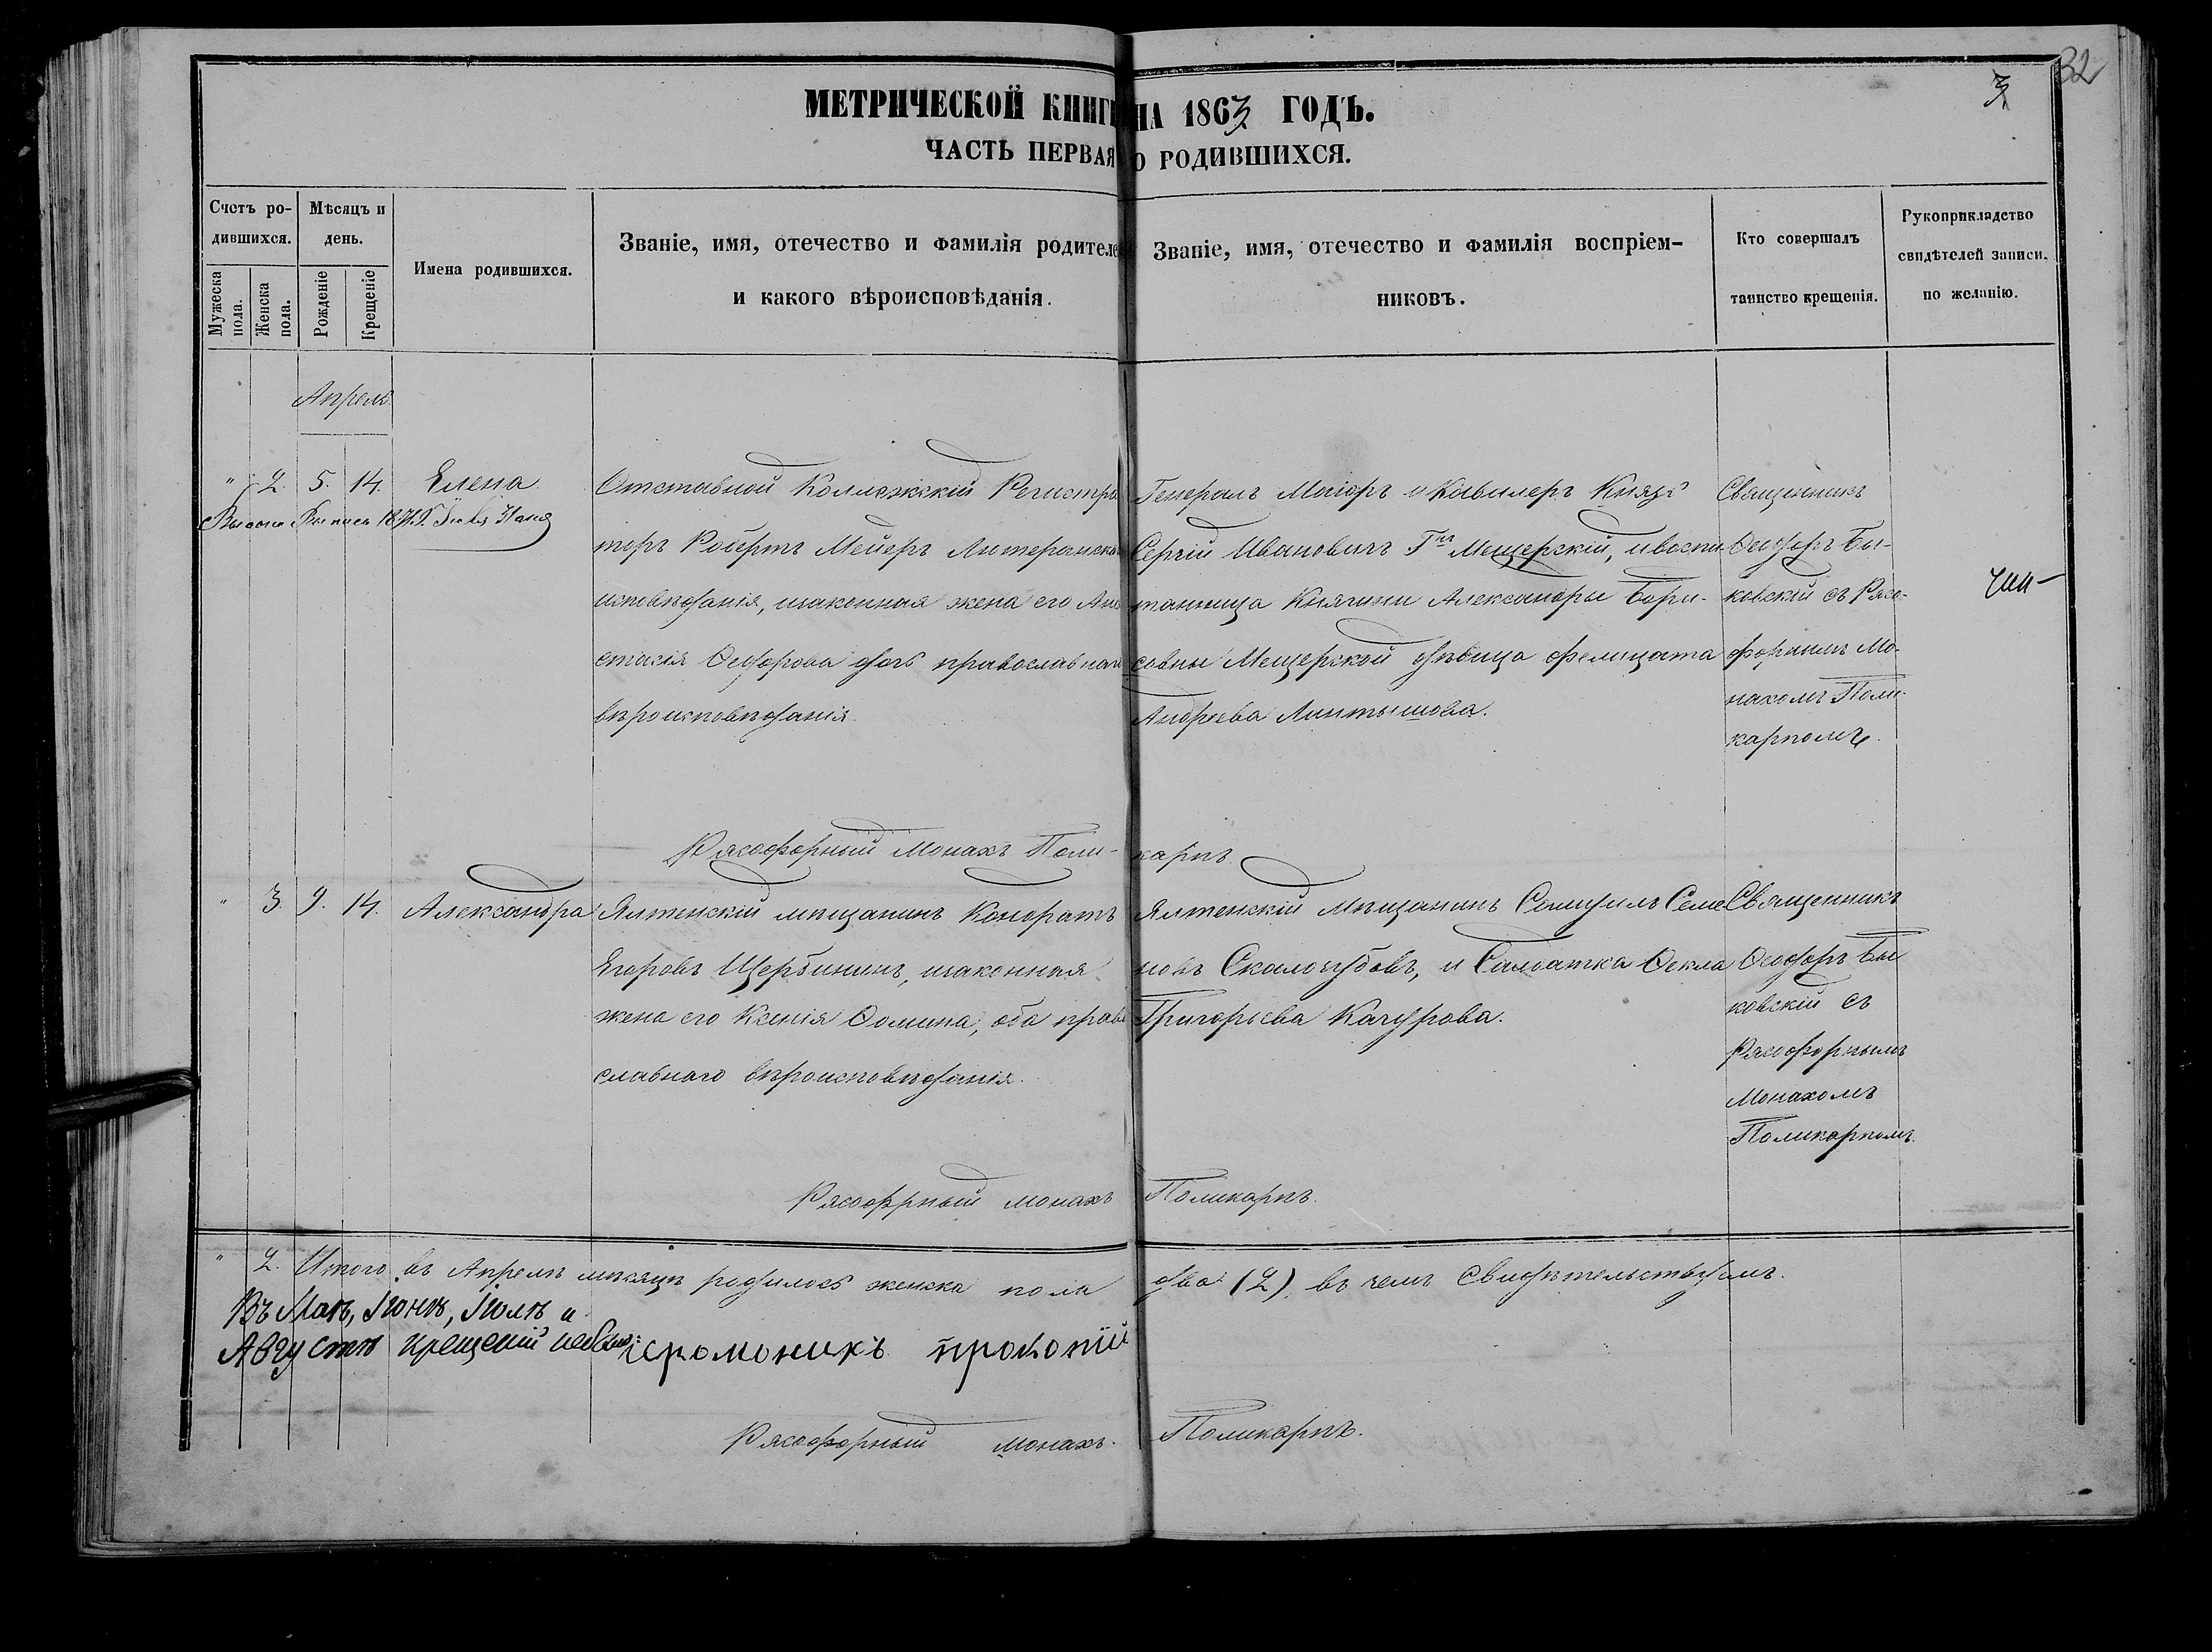 32
3
МЕТРИЧЕСКОЙ КНИГИ НА 1863 ГОДЪ.
ЧАСТЬ ПЕРВАЯ О РОДИВШИХСЯ.
Счетъ ро-
дившихся.
Мужеска пола.
Женска пола.
Мѣсяцъ и
день.
Рожденіе
Крещеніе
Имена родившихся.
Званіе, имя, отечество и фамилія родителе
и какого вѣроисповѣданія.
Званіе, имя, отечество и фамилія воспріем-
никовъ.
Кто совершалъ
таинство крещенія.
Рукоприкладство
свидѣтелей записи
по желанію.
Апрель
" 2. 5. 14. Елена
1871
Отставной Коллежскій Регистра
торъ Робертъ Мейеръ Лютеранска
исповѣданія, изаконная жена его Ана
стасія Ѳеодорова дочь православнаго
вѣроисповѣданія.
Генералъ Маіоръ и Кавалеръ Князь
Сергій Ивановичъ Мещерскій, и воспи-
танница Княгини Александры Бори-
совны Мещерской дѣвица Фелицата
Андреева
Священникъ
Ѳеодоръ Бы-
ковскій съ Рясо-
форнымъ Мо-
нахомъ Поли-
карпомъ.
Рясофорный Монахъ Поли-карпъ.
" 3. 9. 14. Александра
Ялтенскій мѣщанинъ Кондратъ
Егоровъ Щербининъ, изаконная
жена его Ксенія Ѳомина, оба право
славнаго вѣроисповѣданія.
Ялтенскій Мѣщанинъ Самуилъ Семе
новъ Скалозубовъ, и Салдатка Ѳекла
Григорьева Качурова.
Священникъ
Ѳеодоръ Бы
ковскій съ
Рясофорнымъ
Монахомъ
Поликарпомъ.
Рясофрный монахъ Поликарпъ.
" 2. Итого въ Апрелѣ мѣсяцѣ родилось женска пола два (2), въ чемъ Свидѣтельствуемъ.
Въ Маѣ, Іюнѣ, Іюлѣ и
Августѣ крещеній небыло:
іеромонихъ прокопій
Рясофорный монахъ. Поликарпъ.